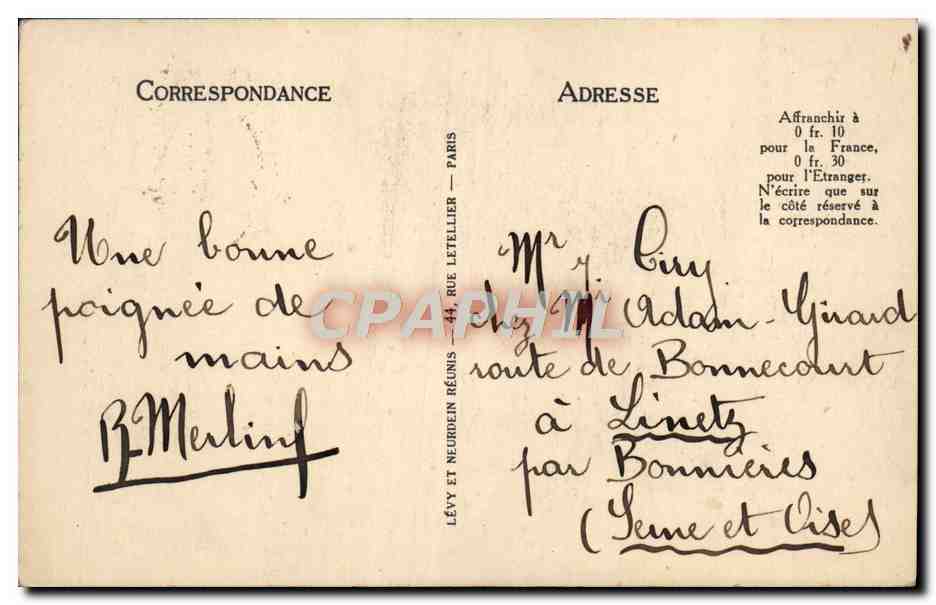 CORRESPONDANCE
Une bonne
poignée de
mains
R. Merlin
LÉVY ET NEURDEIN RÉUNIS — 44, RUE LETELLIER — PARIS
ADRESSE
Affranchir à
0 fr. 10
pour la France,
0 fr. 30
pour l'Etranger.
N'écrire que sur
le côté réservé à
la correspondance.
Mr J. Ciry
chez Mr Adam-Girard
route de Bonnecourt
à Limetz
par Bonnières
(Seine et Oise)
CPAPHIL